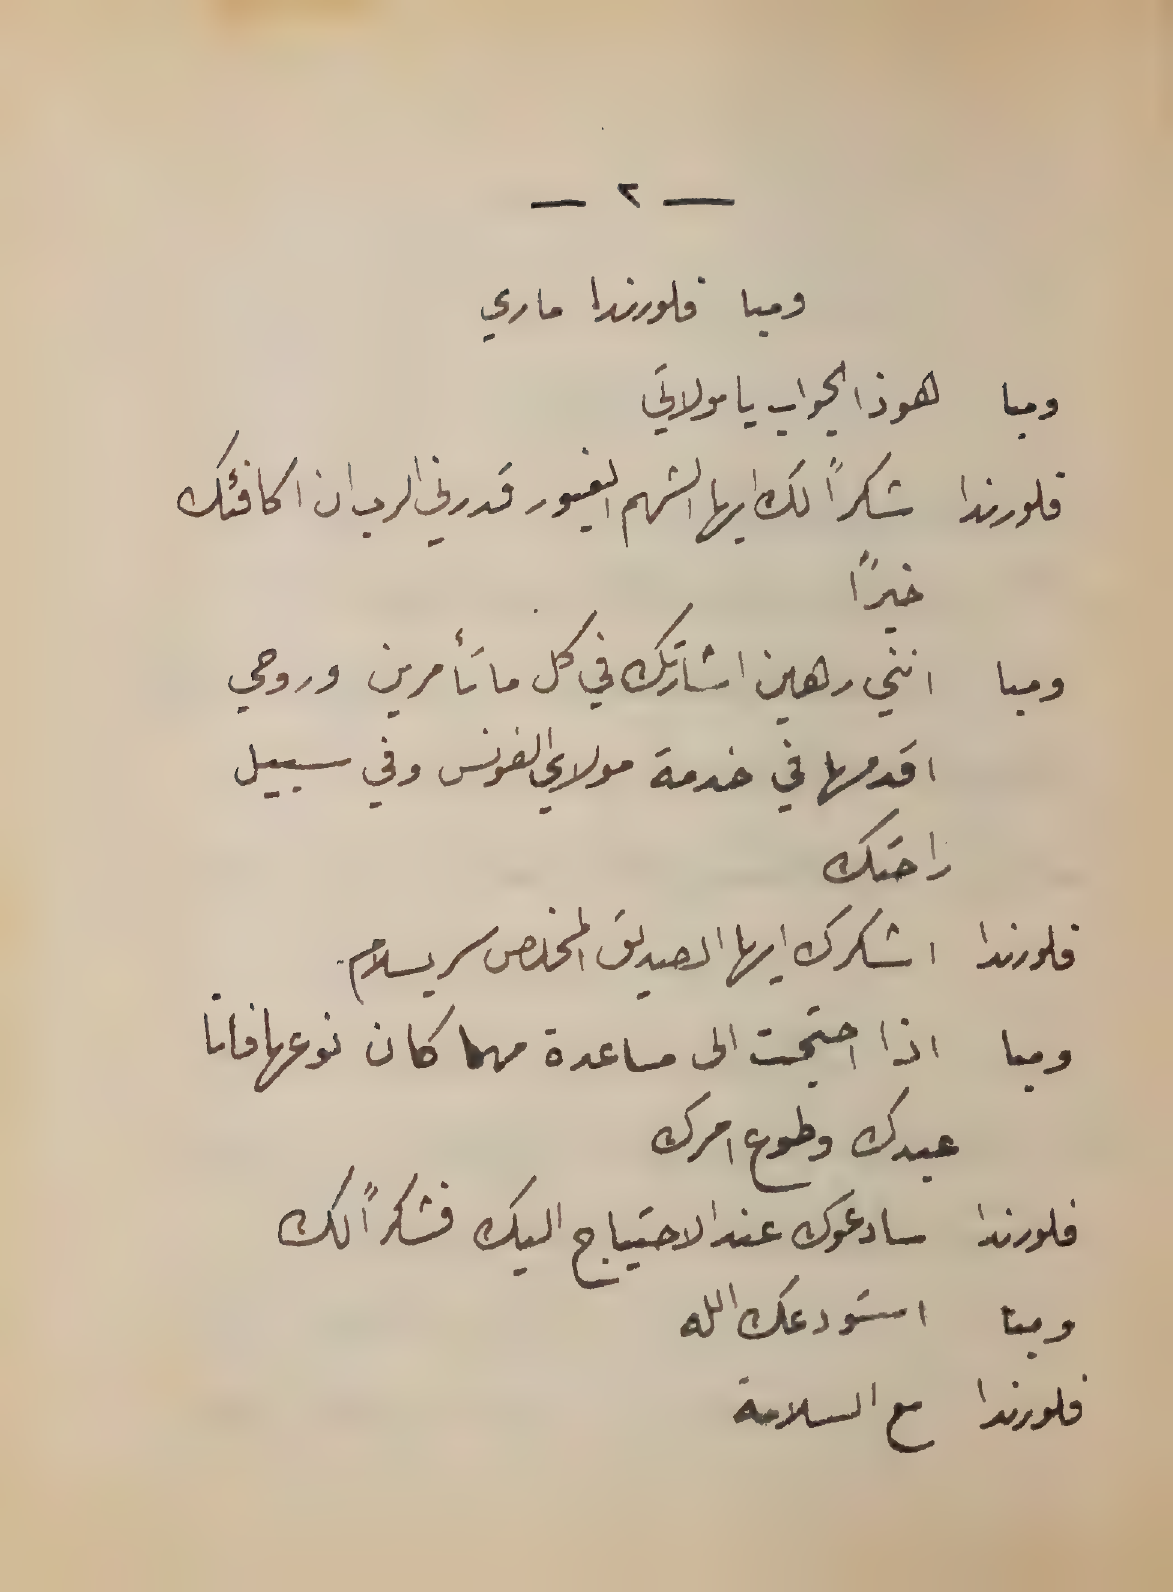 — ٢ —
ومبا فلورندا ماري
ومبا هوذا الجواب يا مولاتي
فلورندا شكراً لك ايها الشهم الغيور قدرني الرب ان اكافئك
خيراً
ومبا انني رهين اشارتك في كل ما تأمرين وروحي
اقدمها في خدمة مولاي الفونس وفي سبيل
راحتك
فلورندا اشكرك ايها الصديق المخلص سر بسلام
ومبا اذا احتجت الى مساعدة مهما كان نوعها فانا
عبدك وطوع امرك
فلورندا سادعوك عند الاحتياج اليك فشكراً لك
ومبا استودعك الله
فلورندا مع السلامة